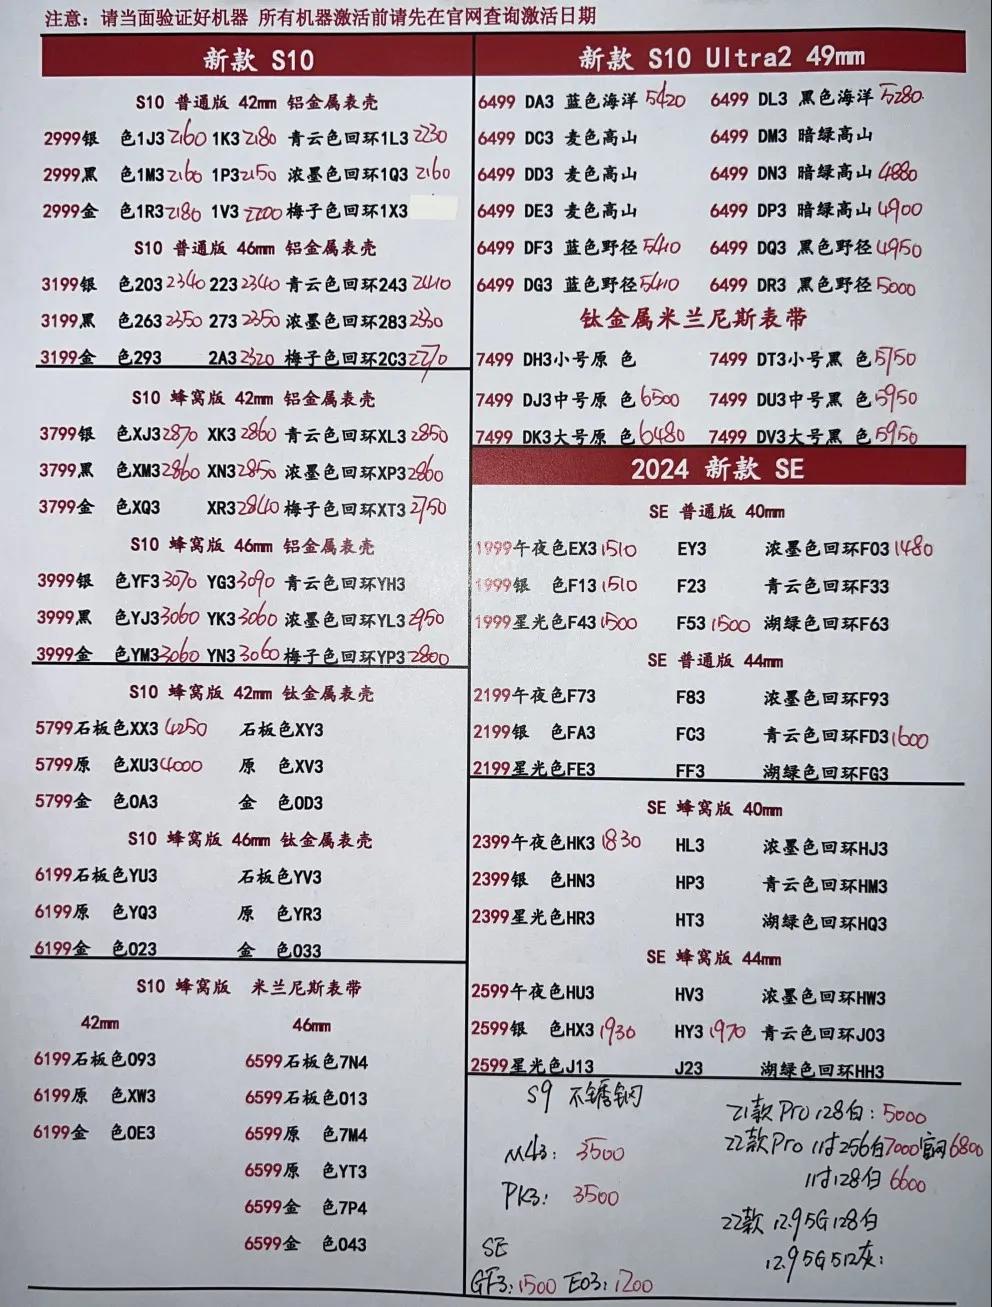 注意：请当面验证好机器 所有机器激活前请先在官网查询激活日期
新款 S10
S10 普通版 42mm 铝金属表壳
2999银 色1J3 2160 1K3 2180 青云色回环1L3 2230
2999黑 色1M3 2160 1P3 2150 浓墨色回环1Q3 2160
2999金 色1R3 2180 1V3 2200 梅子色回环1X3
S10 普通版 46mm 铝金属表壳
3199银 色203 2340 223 2340 青云色回环243 2410
3199黑 色263 2350 273 2350 浓墨色回环283 2330
3199金 色293 2A3 2320 梅子色回环2C3 2270
S10 蜂窝版 42mm 铝金属表壳
3799银 色XJ3 2870 XK3 2860 青云色回环XL3 2850
3799黑 色XM3 2860 XN3 2850 浓墨色回环XP3 2860
3799金 色XQ3 XR3 2840 梅子色回环XT3 2750
S10 蜂窝版 46mm 铝金属表壳
3999银 色YF3 3070 YG3 3090 青云色回环YH3
3999黑 色YJ3 3060 YK3 3060 浓墨色回环YL3 2950
3999金 色YM3 3060 YN3 3060 梅子色回环YP3 2800
S10 蜂窝版 42mm 钛金属表壳
5799石板色XX3 4250 石板色XY3
5799原 色XU3 4000 原 色XV3
5799金 色0A3 金 色0D3
S10 蜂窝版 46mm 钛金属表壳
6199石板色YU3 石板色YV3
6199原 色YQ3 原 色YR3
6199金 色023 金 色033
S10 蜂窝版 米兰尼斯表带
42mm 46mm
6199石板色093 6599石板色7N4
6199原 色XW3 6599石板色013
6199金 色0E3 6599原 色7M4
6599原 色YT3
6599金 色7P4
6599金 色043
新款 S10 Ultra2 49mm
6499 DA3 蓝色海洋 5420 6499 DL3 黑色海洋 5280
6499 DC3 麦色高山 6499 DM3 暗绿高山
6499 DD3 麦色高山 6499 DN3 暗绿高山 4880
6499 DE3 麦色高山 6499 DP3 暗绿高山 4900
6499 DF3 蓝色野径 5410 6499 DQ3 黑色野径 4950
6499 DG3 蓝色野径 5410 6499 DR3 黑色野径 5000
钛金属米兰尼斯表带
7499 DH3小号原 色 7499 DT3小号黑 色 5750
7499 DJ3中号原 色 6500 7499 DU3中号黑 色 5950
7499 DK3大号原 色 6480 7499 DV3大号黑 色 5950
2024 新款 SE
SE 普通版 40mm
1999午夜色EX3 1510 EY3 浓墨色回环F03 1480
1999银 色F13 1510 F23 青云色回环F33
1999星光色F43 1500 F53 1500 湖绿色回环F63
SE 普通版 44mm
2199午夜色F73 F83 浓墨色回环F93
2199银 色FA3 FC3 青云色回环FD3 1600
2199星光色FE3 FF3 湖绿色回环FG3
SE 蜂窝版 40mm
2399午夜色HK3 1830 HL3 浓墨色回环HJ3
2399银 色HN3 HP3 青云色回环HM3
2399星光色HR3 HT3 湖绿色回环HQ3
SE 蜂窝版 44mm
2599午夜色HU3 HV3 浓墨色回环HW3
2599银 色HX3 1930 HY3 1970 青云色回环J03
2599星光色J13 J23 湖绿色回环HH3
S9 不锈钢
M43：3500
PK3：3500
SE
GF3：1500 E03：1200
21款Pro 128白：5000
22款Pro 11寸256白7000官网6800
11寸128白 6600
22款 12.9 5G 128白
12.9 5G 512灰：